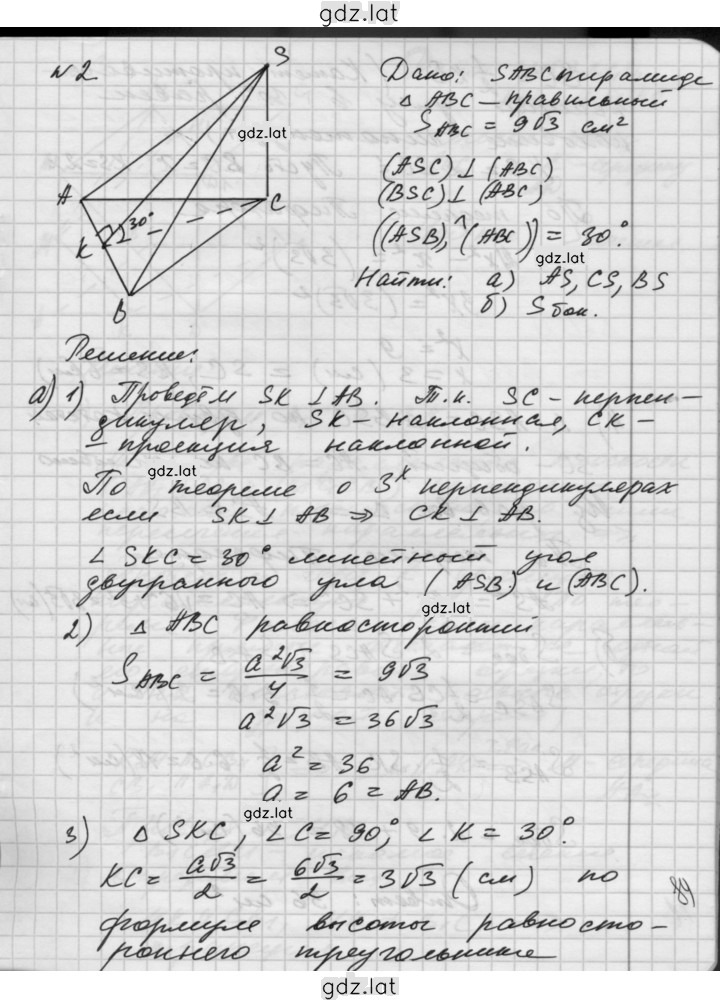 gdz.lat
№2
S
gdz.lat
A
C
K
30°
B
Дано: SABC пирамида
△ ABC – правильный
S ABC = 9√3 см²
(ASC) ⊥ (ABC)
(BSC) ⊥ (ABC)
((ASB),^(ABC)) = 30°.
gdz.lat
Найти: а) AS, CS, BS
б) S бок.
Решение:
а) 1) Проведём SK ⊥ AB. Т.к. SC – перпен-
дикуляр, SK – наклонная, CK –
– проекция наклонной.
gdz.lat
По теореме о 3х перпендикулярах
если SK ⊥ AB ⇒ CK ⊥ AB.
∠ SKC = 30° линейный угол
двугранного угла (ASB) и (ABC).
gdz.lat
2) △ ABC равносторонний
S ABC = a²√3/4 = 9√3
a²√3 = 36√3
a² = 36
a = 6 = AB.
gdz.lat
3) △ SKC, ∠C = 90°, ∠K = 30°.
KC = a√3/2 = 6√3/2 = 3√3 (см) по
формуле высоты равносто-
роннего треугольника
89
gdz.lat